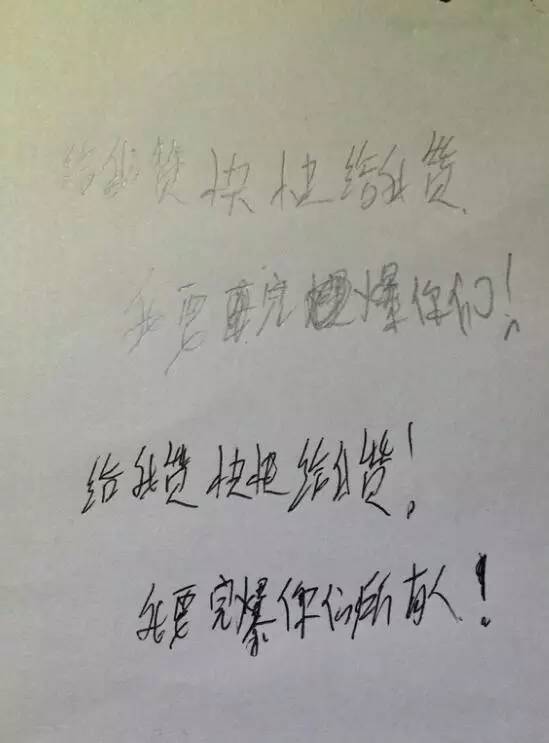 给我赞快快给我赞
我要完爆你们!
给我赞快快给我赞!
我要完爆你们所有人!